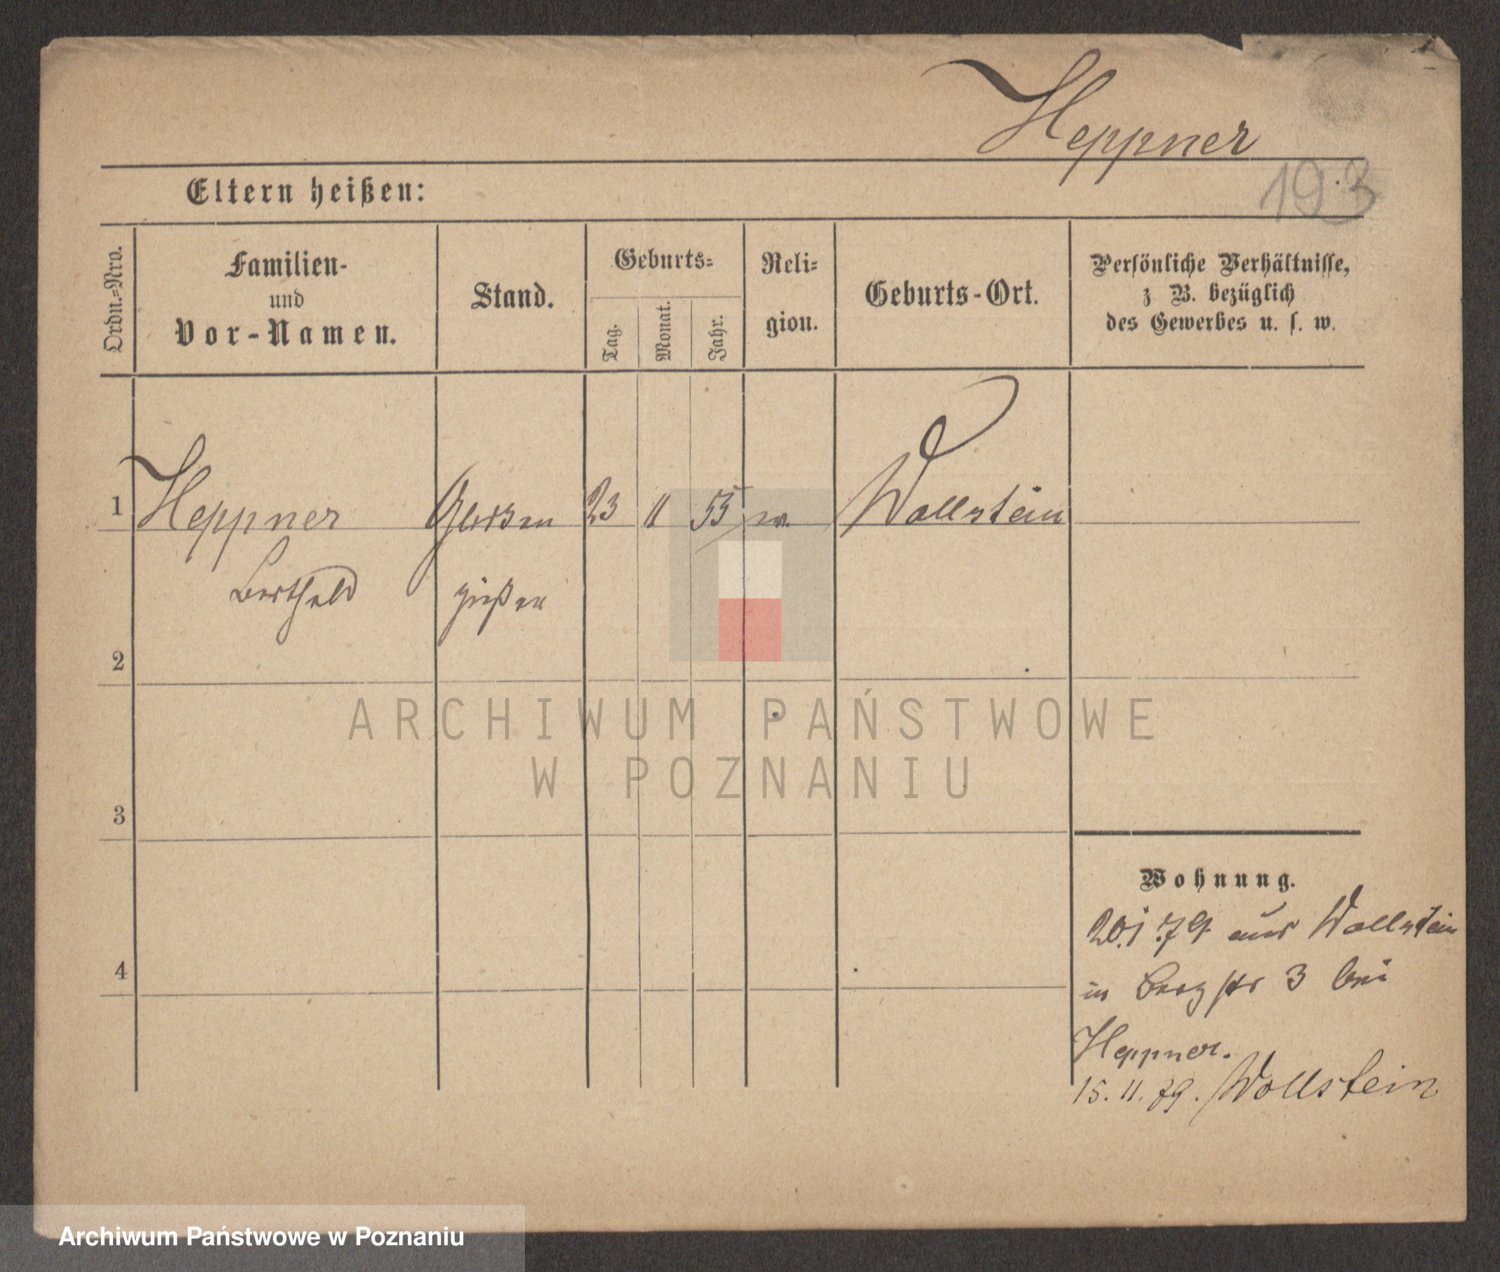 Heppner
193
Eltern heißen:
Ordn.-Nro.
Familien-
und
Vor-Namen.
Stand.
Geburts-
Tag.
Monat.
Jahr.
Reli-
gion.
Geburts-Ort.
Persönliche Verhältnisse,
z B. bezüglich
des Gewerbes u. s. w.
1 Heppner 23 11 55 Wollstein
Berthold gießer
2
3
4
Wohnung.
20.1.79 aus Wollstein
in Bergstr 3 bei
Heppner.
15. 11. 79. Wollstein
ARCHIWUM PAŃSTWOWE
W POZNANIU
Archiwum Państwowe w Poznaniu